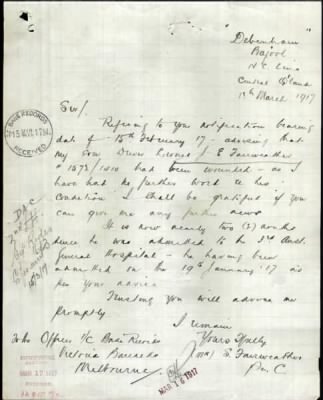 Debenham
Bajool
N.C. Line
Central Q'land
13th March 1917
Sir/
Refering to your notification bearing
date of 15th February 17 advising that
my Son Driver Leonard J E Fairweather
had been wounded – as I
have had no further word re his
Condition I shall be gratiful if you
can give me any further news
It is now nearly two (2) months
since he was admitted to the 3rd Aust.
General Hospital – he having been
admitted on the 19th January 17 as
per Your advice
Trusting you will advise me
promptly
I remain
Yours Ffully
(Mrs) S. Fairweather
Per C
To the Officer I/C Base Records
Victoria Barracks
Melbourne
BASE RECORDS
RECEIVED
MAR 16 1917